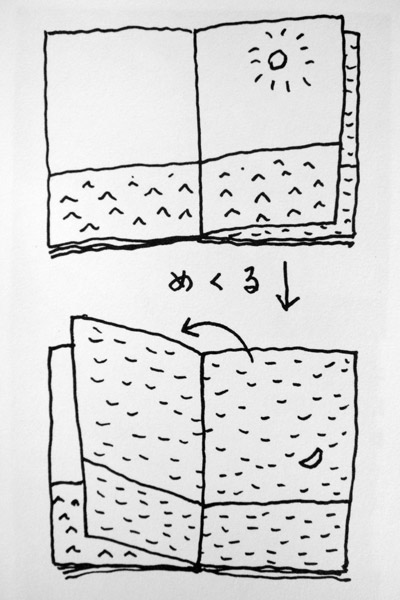 めくる